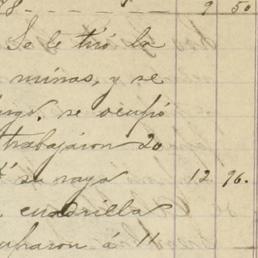 9 50
Se le tiró la
minas, y se
se ocupó
trabajáron 20
su raya 12 96.
cuadrilla
á 11